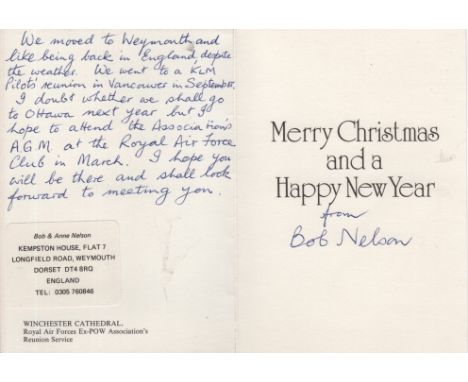 We moved to Weymouth and
like being back in England, despite
the weather. We went to a KLM
Pilots' reunion in Vancouver in September.
I doubt whether we shall go
to Ottawa next year but I
hope to attend the Association's
A.G.M. at the Royal Air Force
Club in March. I hope you
will be there and shall look
forward to meeting you.
Bob & Anne Nelson
KEMPSTON HOUSE, FLAT 7
LONGFIELD ROAD, WEYMOUTH
DORSET DT4 8RQ
ENGLAND
TEL: 0305 760846
WINCHESTER CATHEDRAL.
Royal Air Forces Ex-POW Association's
Reunion Service
Merry Christmas
and a
Happy New Year
from
Bob Nelson